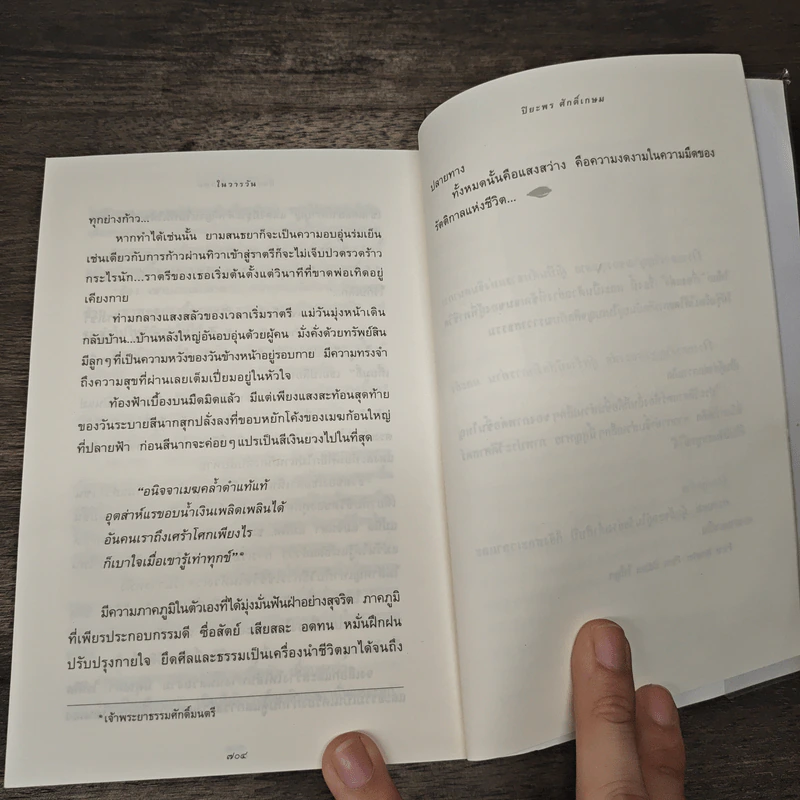 ในวารวัน
ทุกย่างก้าว...
หากทำได้เช่นนั้น ยามสนธยาก็จะเป็นความอบอุ่นร่มเย็น
เช่นเดียวกับการก้าวผ่านทิวาเข้าสู่ราตรีก็จะไม่เจ็บปวดรวดร้าว
กระไรนัก...ราตรีของเธอเริ่มต้นตั้งแต่วินาทีที่ขาดพ่อเทิดอยู่
เคียงกาย
ท่ามกลางแสงสลัวของเวลาเริ่มราตรี แม่วันมุ่งหน้าเดิน
กลับบ้าน...บ้านหลังใหญ่อันอบอุ่นด้วยผู้คน มั่งคั่งด้วยทรัพย์สิน
มีลูกๆ ที่เป็นความหวังของวันข้างหน้าอยู่รอบกาย มีความทรงจำ
ถึงความสุขที่ผ่านเลยเต็มเปี่ยมอยู่ในหัวใจ
ท้องฟ้าเบื้องบนมืดมิดแล้ว มีแต่เพียงแสงสะท้อนสุดท้าย
ของวันระบายสีนากสุกปลั่งลงที่ขอบหยักโค้งของเมฆก้อนใหญ่
ที่ปลายฟ้า ก่อนสีนากจะค่อยๆ แปรเป็นสีเงินยวงไปในที่สุด
“อนิจจาเมฆคล้ำดำแท้แท้
อุตส่าห์แรขอบน้ำเงินเพลิดเพลินได้
อันคนเราถึงเศร้าโศกเพียงไร
ก็เบาใจเมื่อเขารู้เท่าทุกข์”*
มีความภาคภูมิในตัวเองที่ได้มุ่งมั่นฟันฝ่าอย่างสุจริต ภาคภูมิ
ที่เพียรประกอบกรรมดี ซื่อสัตย์ เสียสละ อดทน หมั่นฝึกฝน
ปรับปรุงกายใจ ยึดศีลและธรรมเป็นเครื่องนำชีวิตมาได้จนถึง
*เจ้าพระยาธรรมศักดิ์มนตรี
๗๐๔
ปิยะพร ศักดิ์เกษม
ปลายทาง
ทั้งหมดนั้นคือแสงสว่าง คือความงดงามในความมืดของ
รัตติกาลแห่งชีวิต...